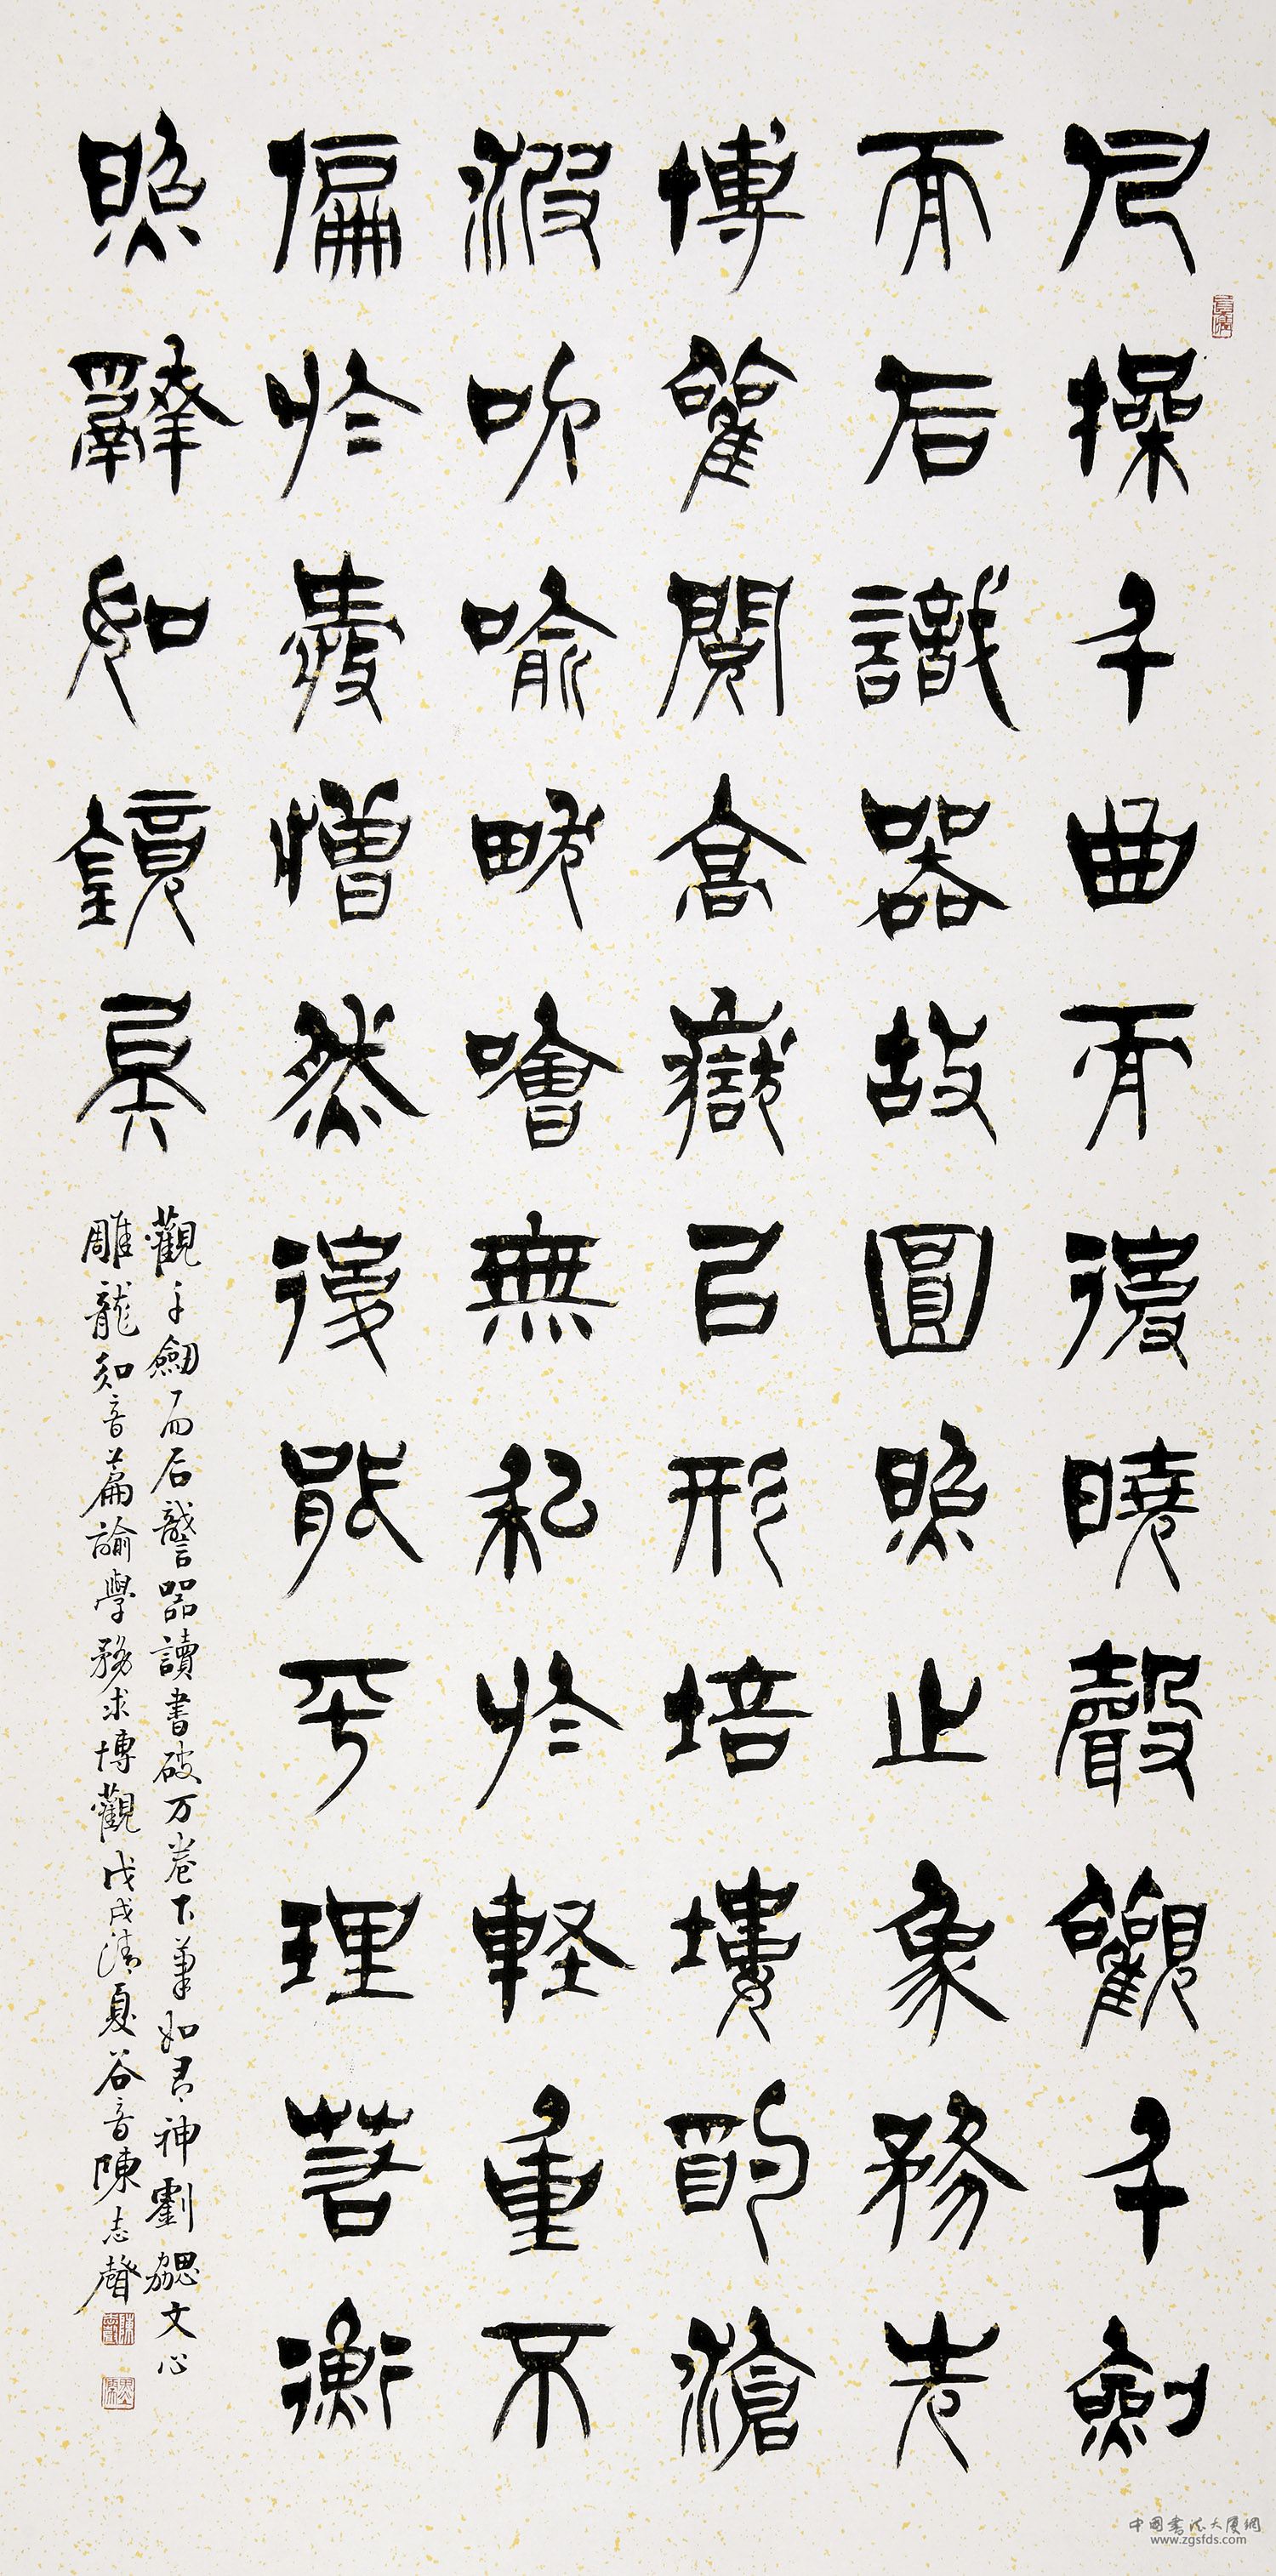 凡操千曲而後曉聲觀千劍
而后識器故圓照止象務先
博雚閱高嶽㠯形培塿酌滄
波喻畎噲無私於軽重不
偏於憎然後能平理若衡
照辭如鏡矣
觀千劍而后識器讀書破万卷下筆如有神劉勰文心
雕龍知音篇論學務求博觀戊戌清夏谷音陳志聲
中國書法大厦網
www.zgsfds.com